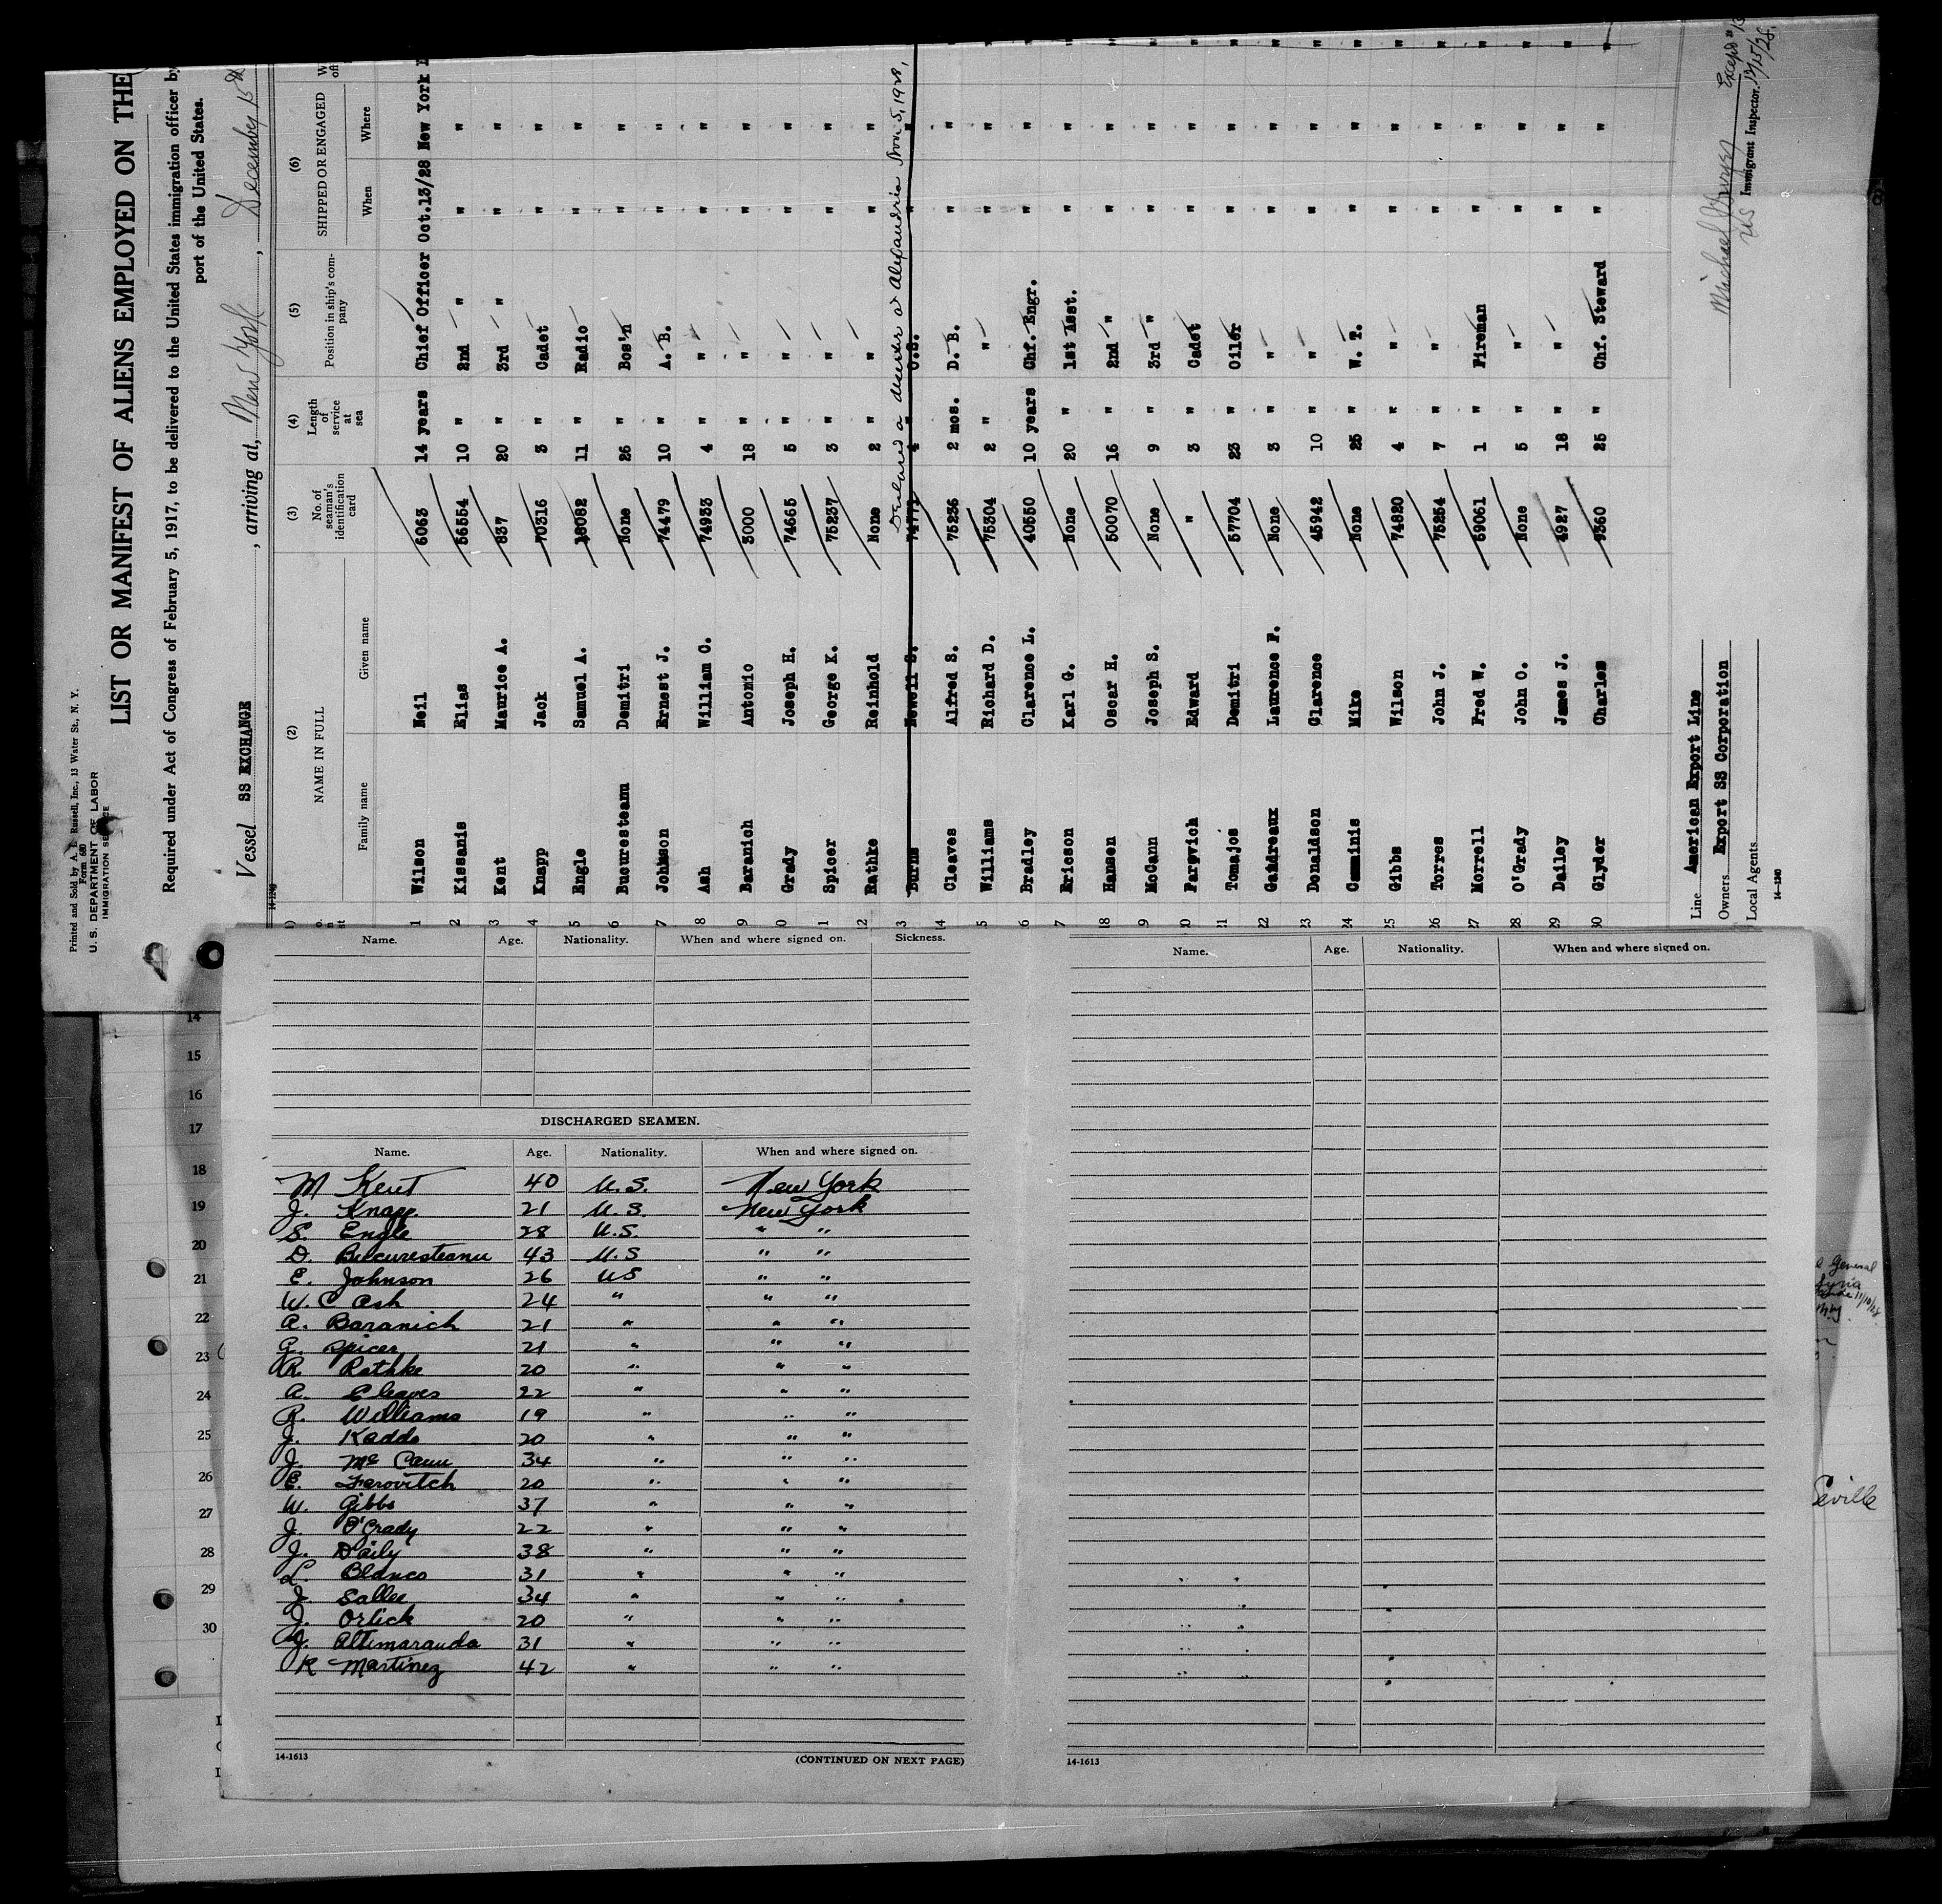 Printed and Sold by A. E. Russell, Inc., 13 Water St., N. Y.
Form 680
U. S. DEPARTMENT OF LABOR
IMMIGRATION SERVICE
LIST OR MANIFEST OF ALIENS EMPLOYED ON THE
Required under Act of Congress of February 5, 1917, to be delivered to the United States immigration officer by
port of the United States.
Vessel SS EXCHANGE, arriving at, New York, December 15th
14-1240
(2) (3) (4) (5) (6)
NAME IN FULL No. of seaman's identification card Length of service at sea Position in ship's company SHIPPED OR ENGAGED
Family name Given name When Where
1 Wilson Neil 6063 14 years Chief Officer Oct.13/28 New York
2 Kissanis Elias 56554 10 " 2nd " " "
3 Kent Maurice A. 837 20 " 3rd " " "
4 Knapp Jack 70316 3 " Cadet " "
5 Engle Samuel A. 18082 11 " Radio " "
6 Bucuresteanu Demitri None 26 " Bos'n " "
7 Johnson Ernest J. 74479 10 " A. B. " "
8 Ash William C. 74933 4 " " " "
9 Baranich Antonio 3000 18 " " " "
10 Grady Joseph H. 74665 5 " " " "
11 Spicer George K. 75237 3 " " " "
12 Rathke Reinhold None 2 " " " "
Declared a deserter at Alexandria Nov 5, 1928,
13 Burns Newell S. 4 " O.S. " "
14 Cleaves Alfred S. 75236 2 mos. D. B. " "
15 Williams Richard D. 75304 2 " " " "
16 Bradley Clarence L. 40550 10 years Chf. Engr. " "
17 Ericson Karl G. None 20 " 1st Asst. " "
18 Hansen Oscar H. 50070 16 " 2nd " " "
19 McCann Joseph S. None 9 " 3rd " " "
20 Edward " 3 " Cadet " "
21 Tomajos Demitri 57704 23 " Oiler " "
22 Gaudreaux Laurence P. None 3 " " " "
23 Donaldson Clarence 45942 10 " " " "
24 Camminis Mike None 25 " W. T. " "
25 Gibbs Wilson 74820 4 " " " "
26 Torres John J. 75254 7 " " " "
27 Morrell Fred W. 69061 1 " Fireman " "
28 O'Grady John O. None 5 " " " "
29 Dailey James J. 4927 18 " " " "
30 Glyder Charles 9360 25 " Chf. Steward " "
Line American Export Line
Owners Export SS Corporation
Local Agents
14-1240
Except
12/15/28.
Immigrant Inspector.
Name. Age. Nationality. When and where signed on. Sickness.
DISCHARGED SEAMEN.
Name. Age. Nationality. When and where signed on.
M Kent 40 U.S. New York
J. Knapp 21 U.S. New York
S. Engle 28 U.S. " "
D. Bucuresteanu 43 U.S " "
E. Johnson 26 US " "
W. C Ash 24 " " "
A. Baranich 21 " " "
G. Spicer 21 " " "
R. Rathke 20 " " "
A. Cleaves 22 " " "
R. Williams 19 " " "
J. Kadds 20 " " "
J. Mc Cann 34 " " "
E. Ferovitch 20 " " "
W. Gibbs 37 " " "
J. O'Grady 22 " " "
J. Daily 38 " " "
L. Blanco 31 " " "
J. Salles 34 " " "
J. Orlick 20 " " "
J. Altimaranda 31 " " "
R Martinez 42 " " "
14-1613 (CONTINUED ON NEXT PAGE)
Name. Age. Nationality. When and where signed on.
14-1613
14
15
16
17
18
19
20
21
22
23
24
25
26
27
28
29
30
General
Syria
Seville